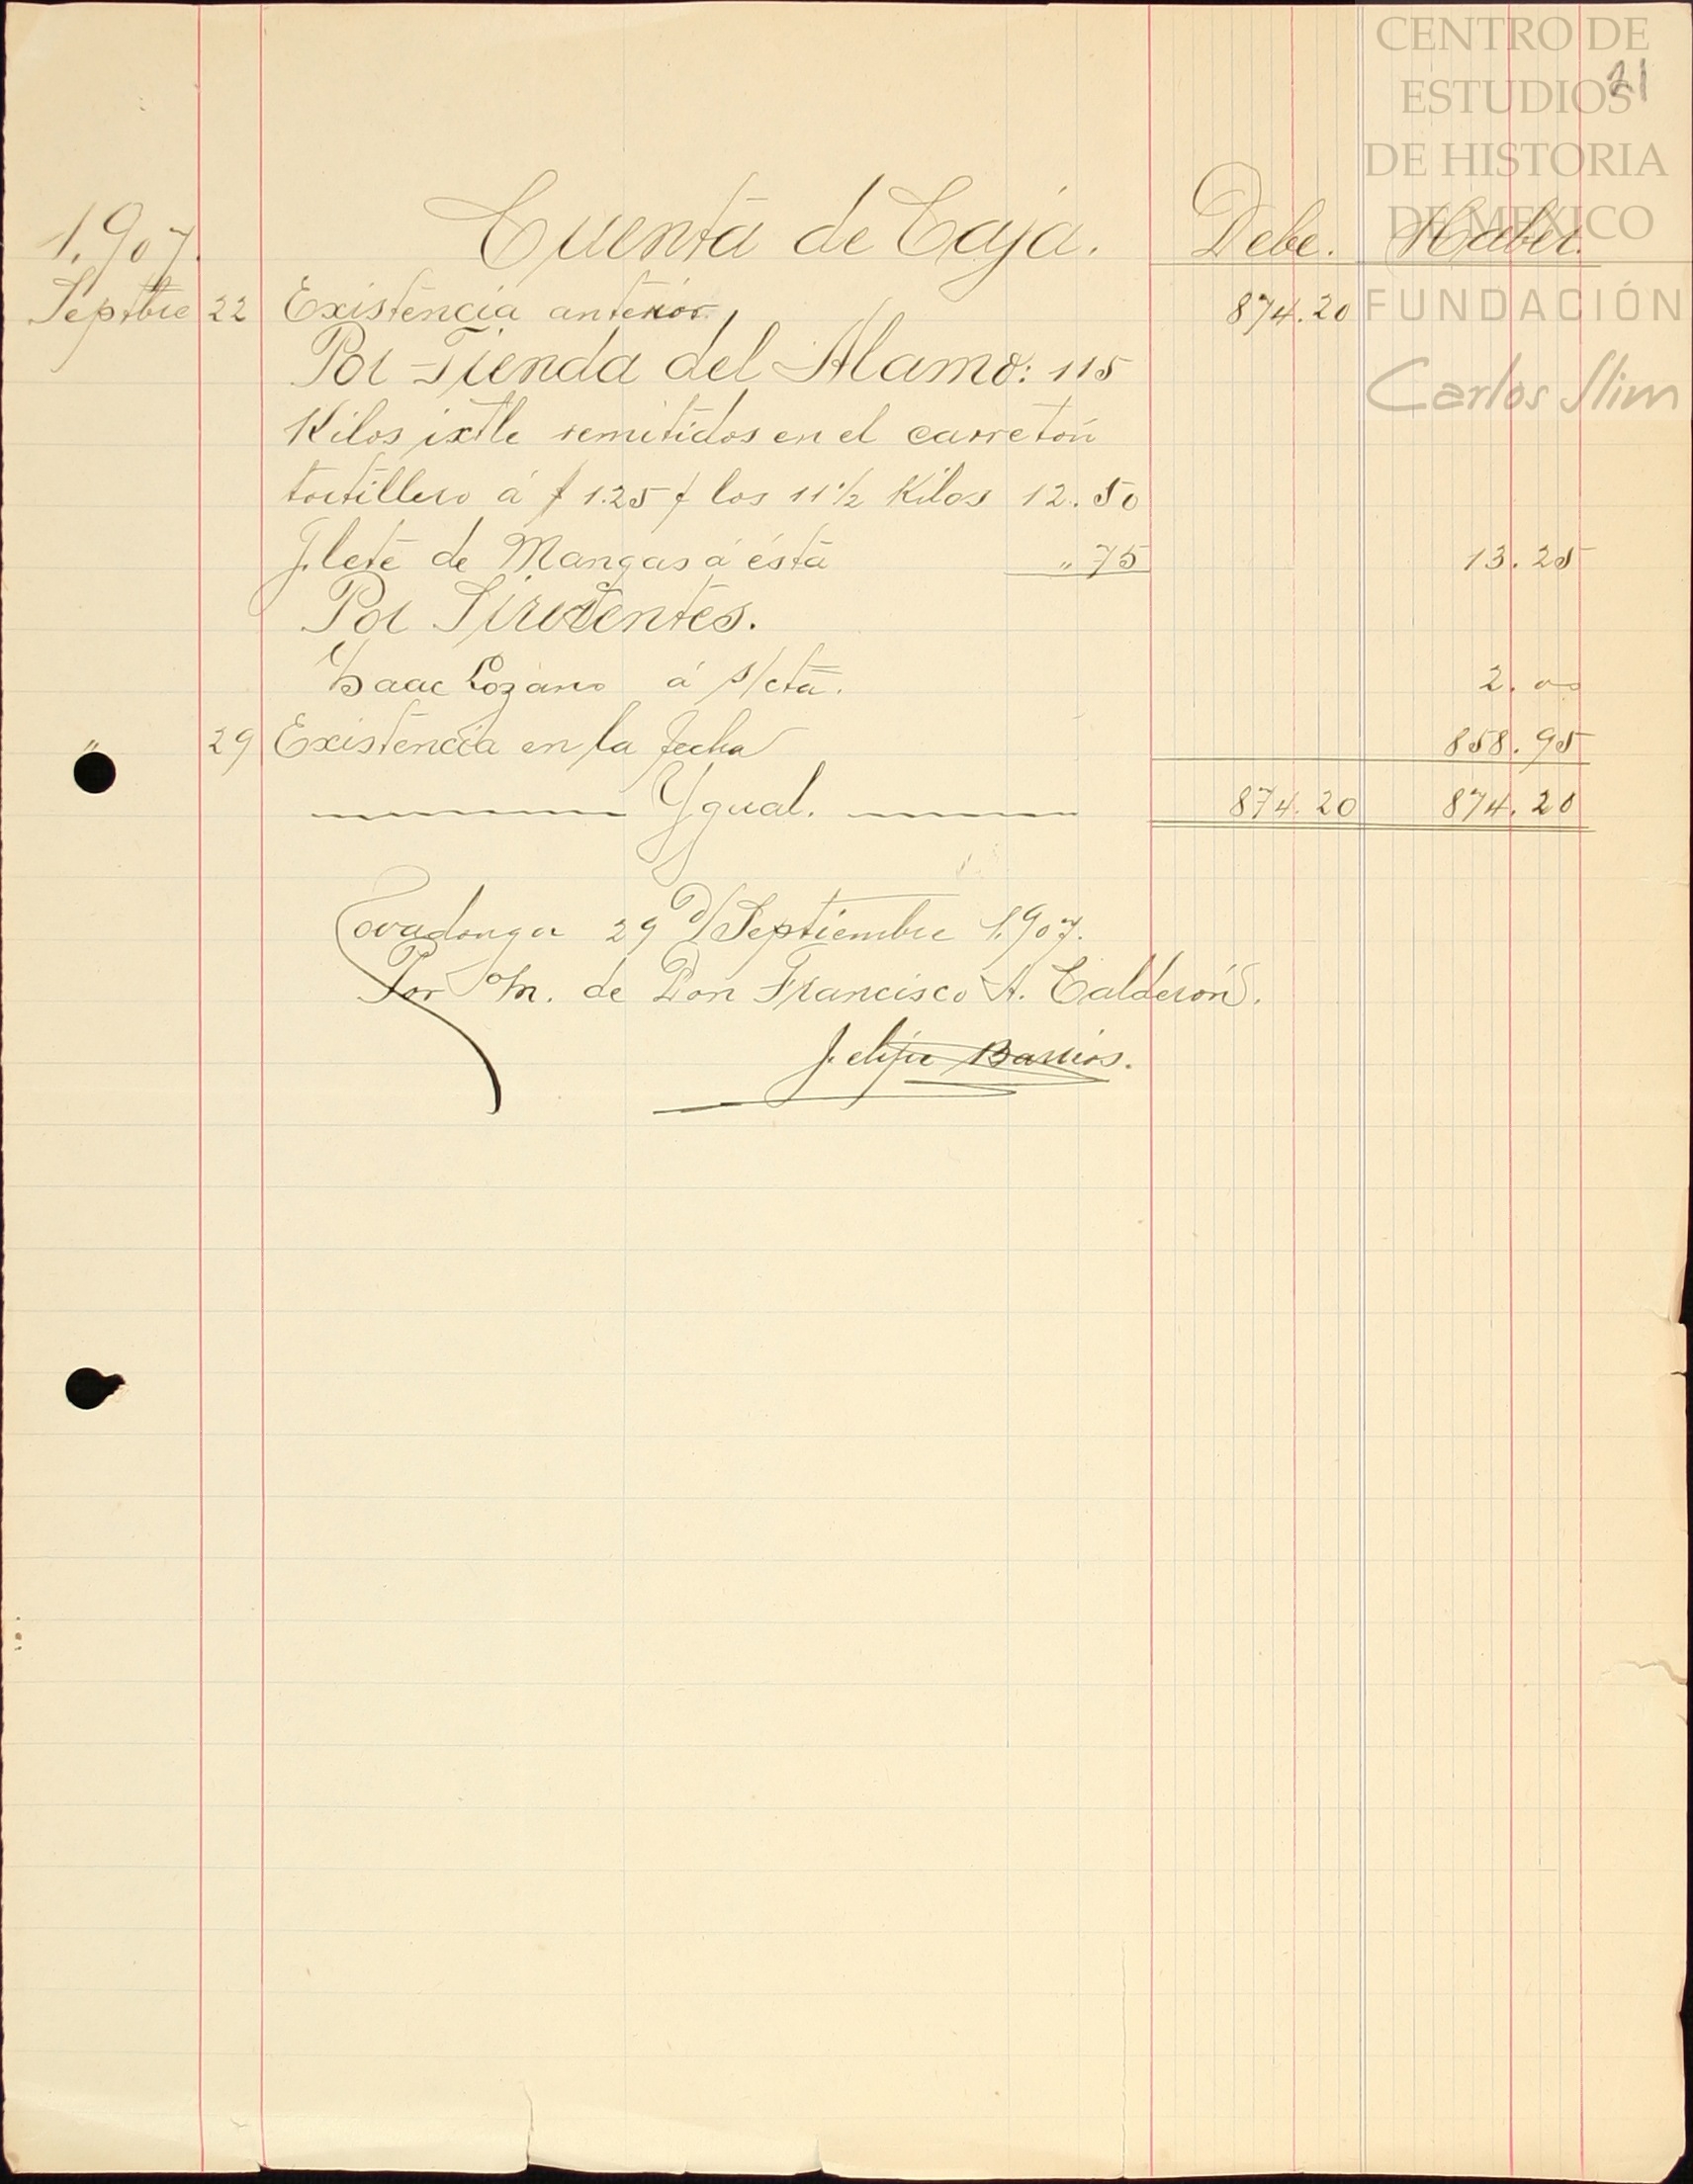 CENTRO DE
ESTUDIOS
21
DE HISTORIA
DE MEXICO
FUNDACIÓN
Carlos Slim
1.907. Cuenta de Caja. Debe. Haber.
Septbre 22 Existencia anterior. 874.20
Por Tienda del Alamo: 115
Kilos ixtle remitidos en el carretón
tortillero á $1.25 ¢ los 11 1/2 Kilos 12.50
flete de Mangas á ésta " 75 13.25
Por Sirvientes.
Isaac Lozano á s/cta. 2.00
" 29 Existencia en la fecha 858.95
Ygual. 874.20 874.20
Covadonga 29 D/ Septiembre 1.907.
Por m. de Don Francisco A. Calderón.
Felipe Barrios.